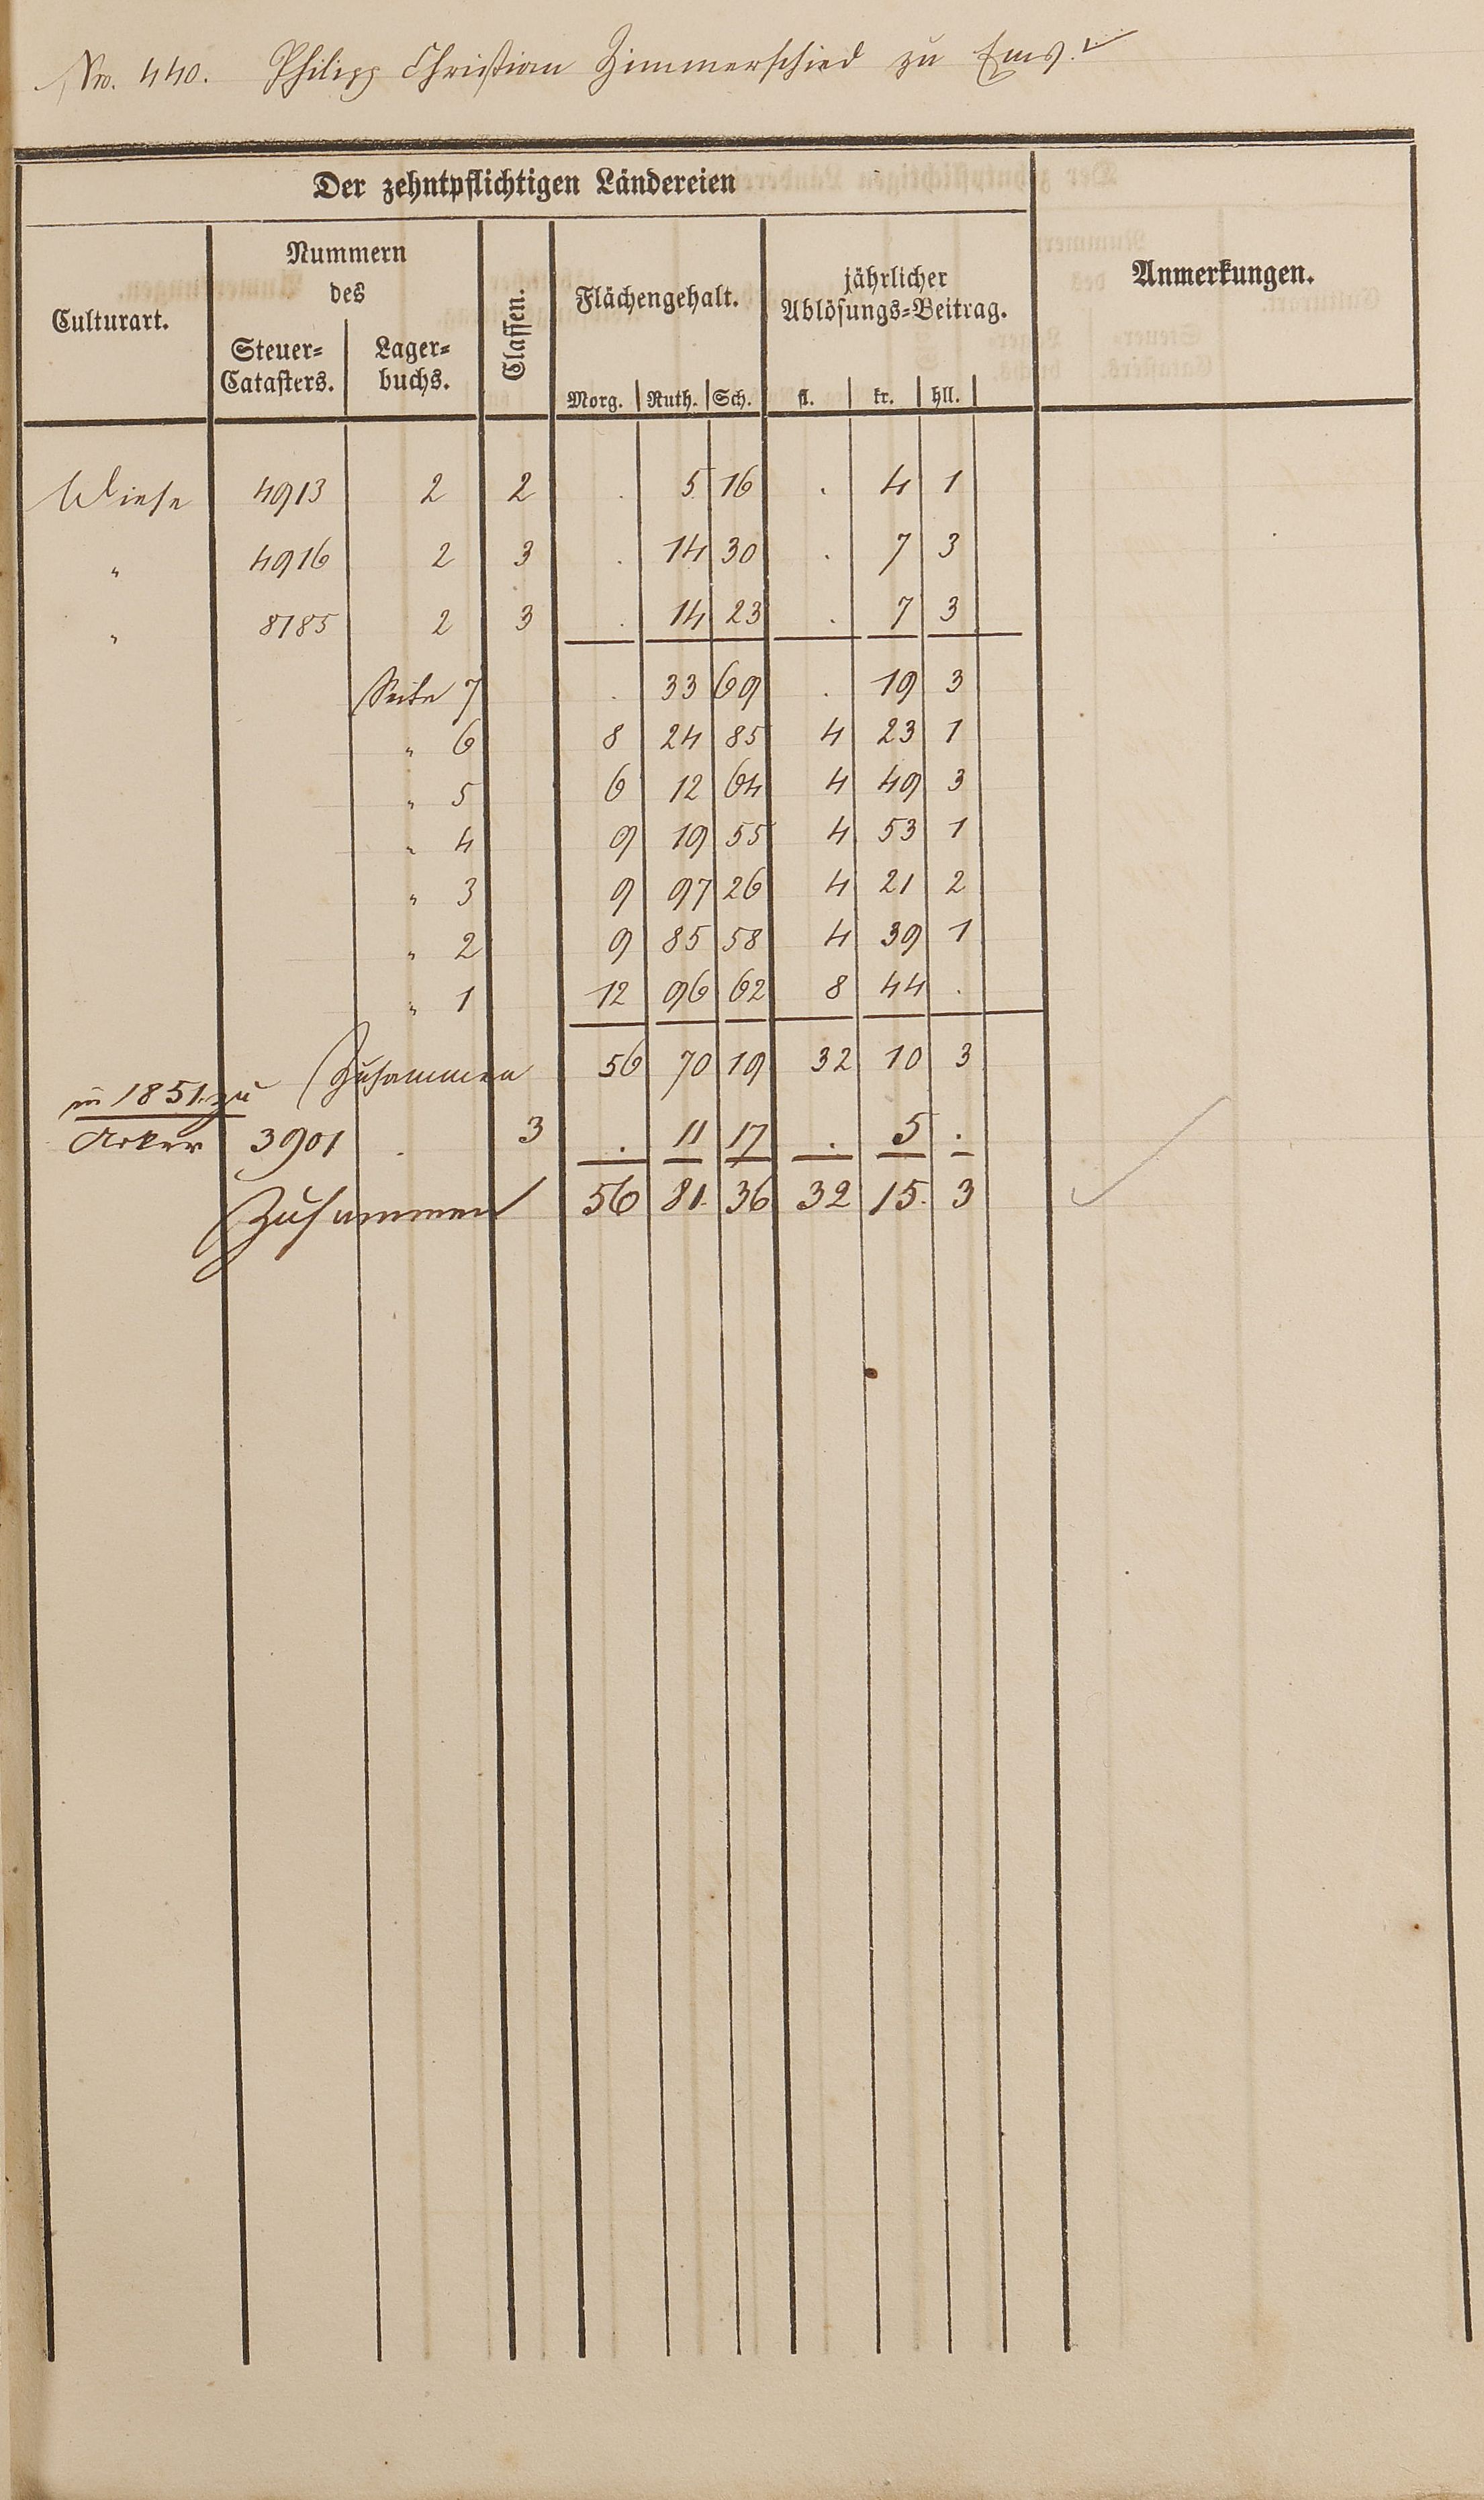 No. 440. Philipp Christian Zimmerschied zu Ems.
Der zehntpflichtigen Ländereien
Culturart. Nummern des Steuer=Catasters. Lager=buchs. Classen. Flächengehalt. Morg. Ruth. Sch. jährlicher Ablösungs=Beitrag. fl. kr. hll. Anmerkungen.
Wiese 4913 2 2 . 5 16 . 4 1
" 4916 2 3 . 14 30 . 7 3
" 8185 2 3 . 14 23 . 7 3
Seite 7 . 33 69 . 19 3
" 6 8 24 85 4 23 1
" 5 6 12 64 4 49 3
" 4 9 19 55 4 53 1
" 3 9 97 26 4 21 2
" 2 9 85 58 4 39 1
" 1 12 96 62 8 44 .
Zusammen 56 70 19 32 10 3
in 1851. zu
Acker 3901 . 3 . 11 17 . 5 .
Zusammen 56 81. 36 32 15. 3